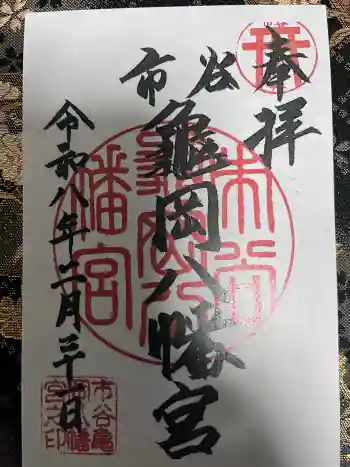 奉拝
市谷
龜岡八幡宮
令和八年三月三十一日
市谷亀岡八幡宮
市谷亀岡八幡宮之印